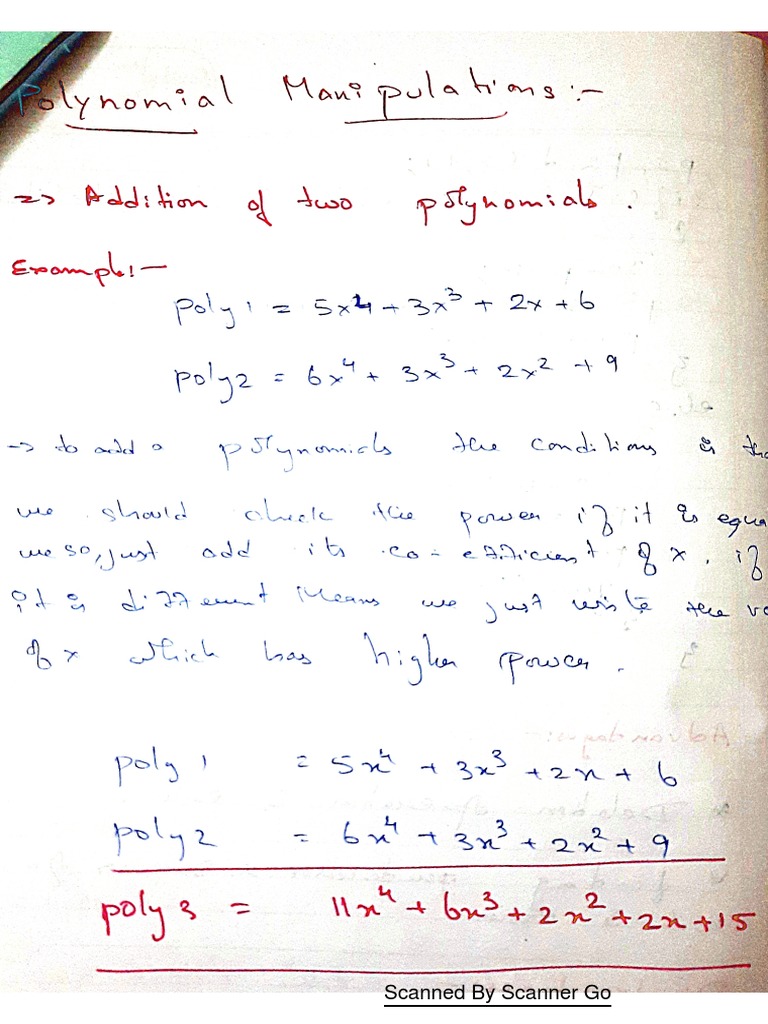 Polynomial Manipulations:-
=> Addition of two polynomials.
Example:-
poly 1 = 5x4 + 3x³ + 2x + 6
poly 2 = 6x⁴ + 3x³ + 2x² + 9
-> to add a polynomials the conditions is
we should check the power if it is
we so, just add its co-efficient of x. if
it is different means we just write the
of x which has higher power.
poly 1 = 5x⁴ + 3x³ + 2x + 6
poly 2 = 6x⁴ + 3x³ + 2x² + 9
poly 3 = 11x⁴ + 6x³ + 2x² + 2x + 15
Scanned By Scanner Go